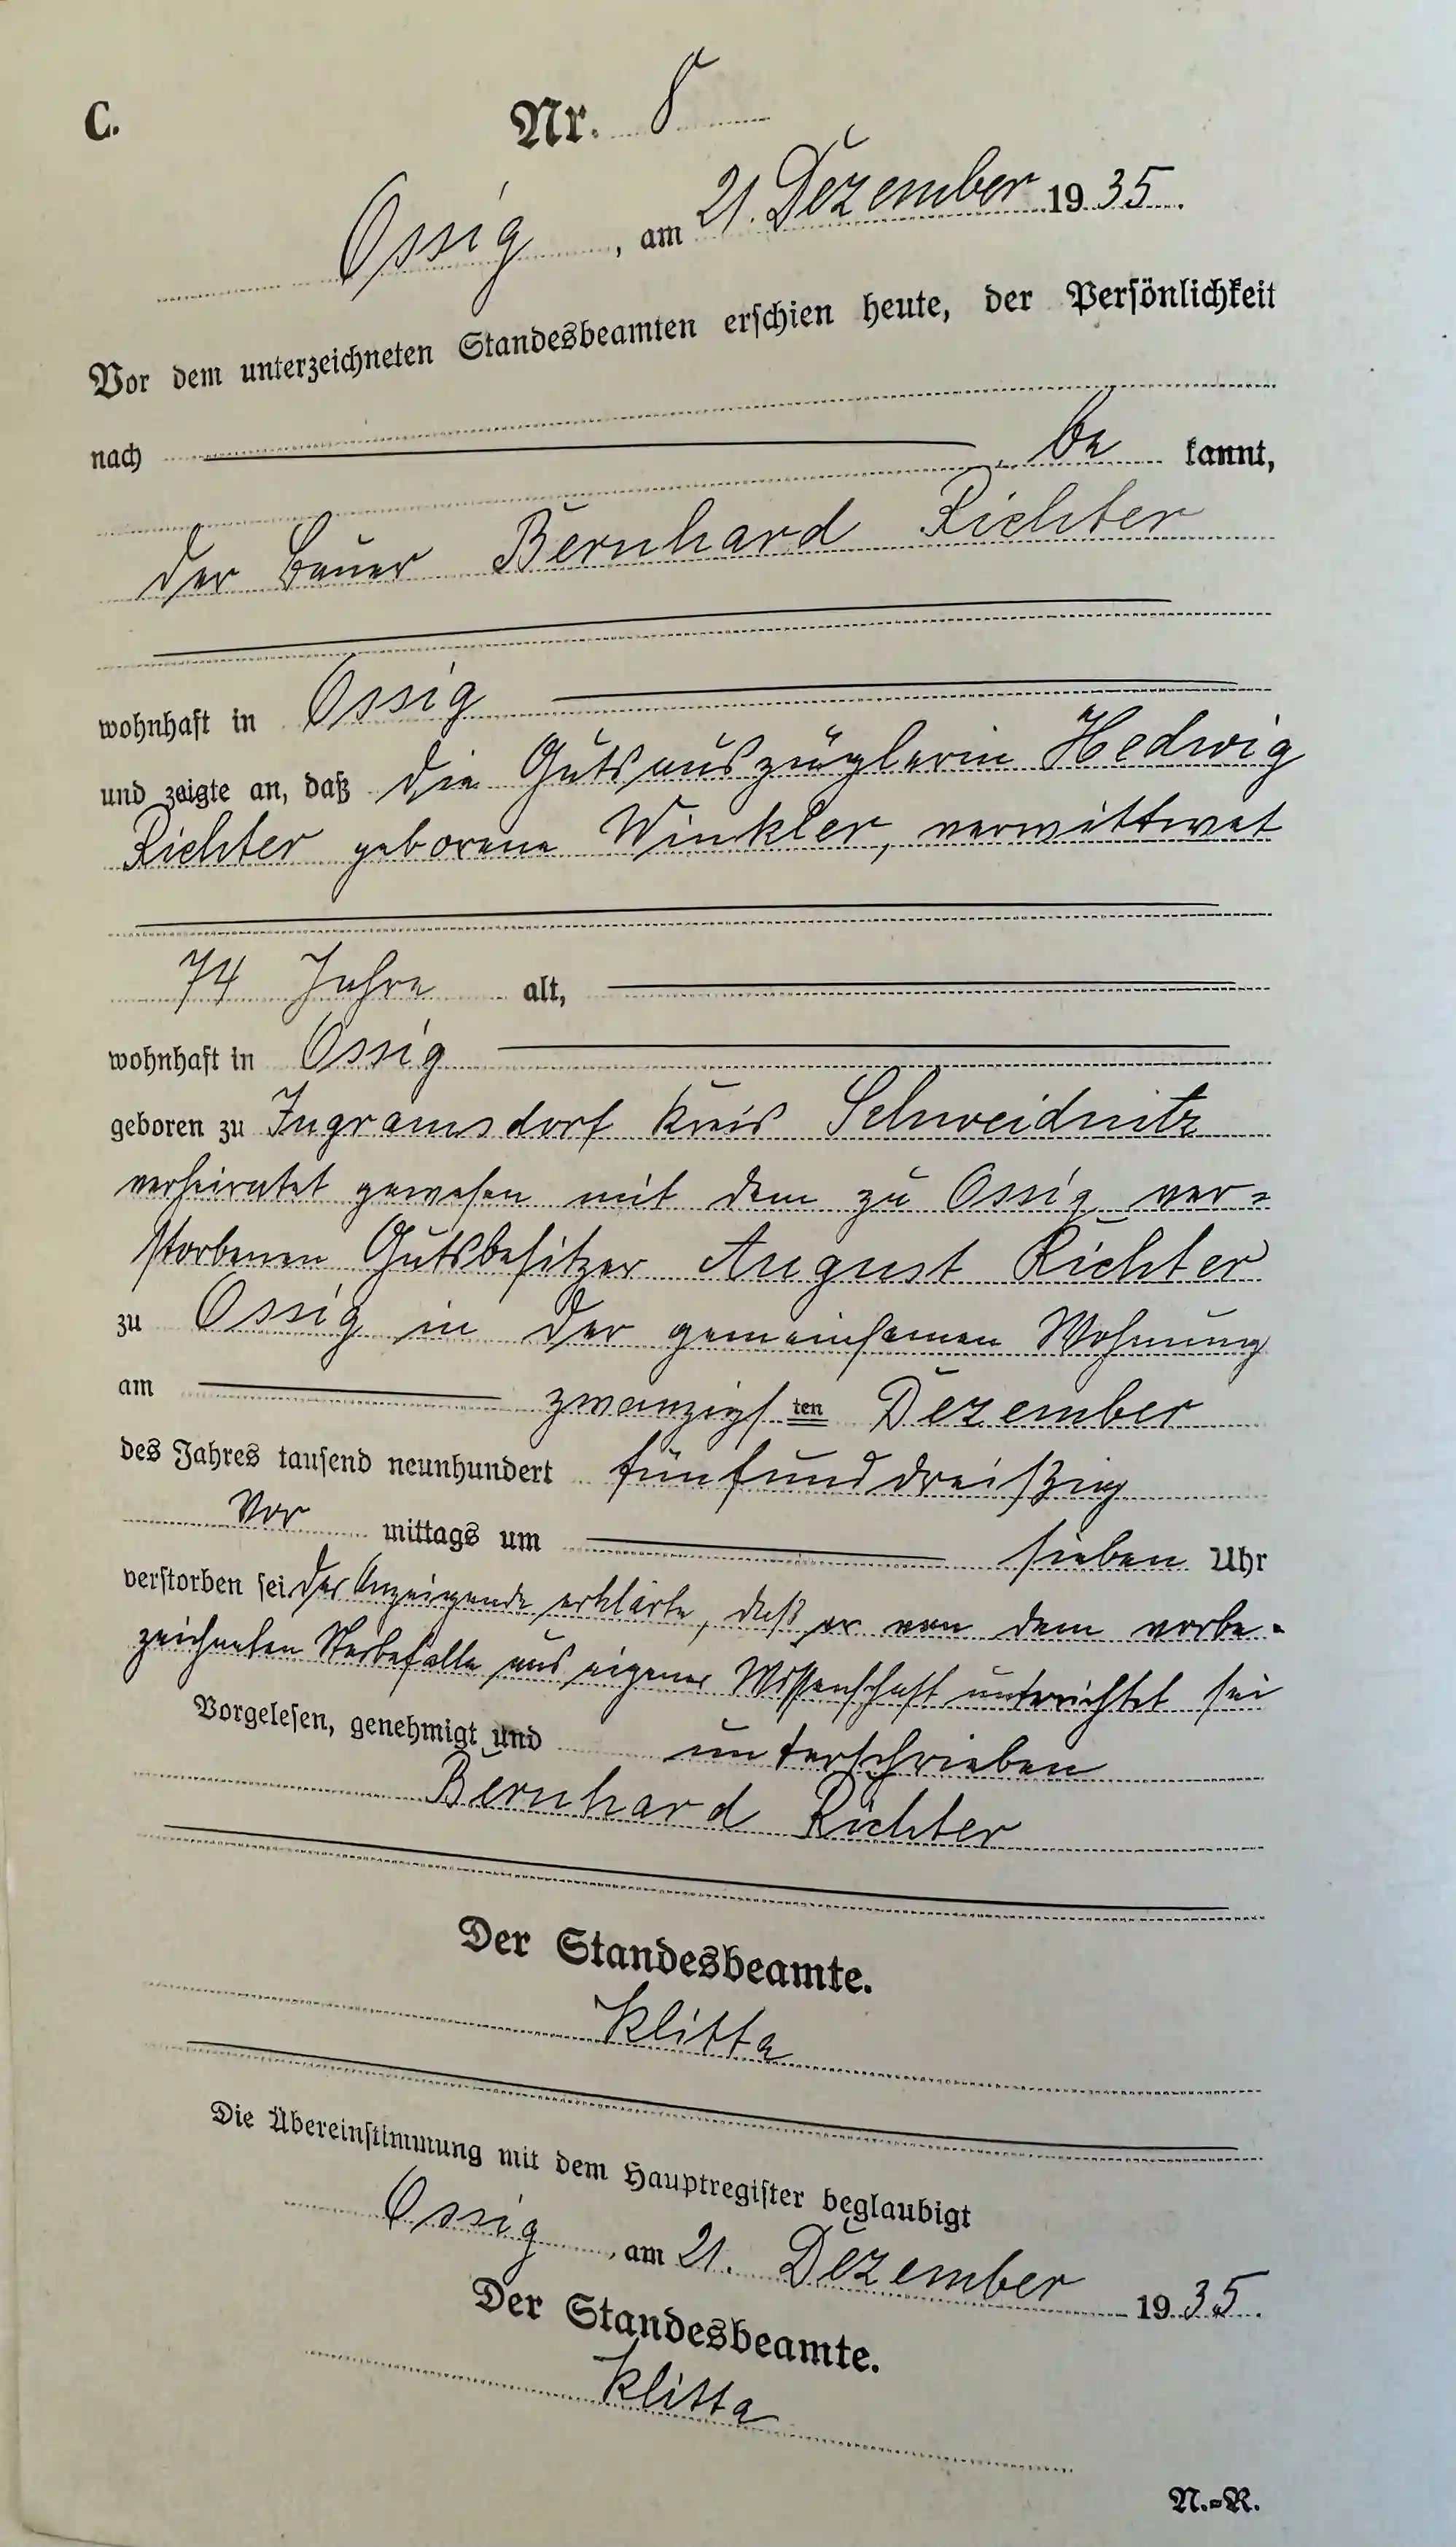 C.
Nr. 8
Ossig, am 21. Dezember 1935.
Vor dem unterzeichneten Standesbeamten erschien heute, der Persönlichkeit
nach be kannt,
der Bauer Bernhard Richter
wohnhaft in Ossig
und zeigte an, daß die Gutsauszüglerin Hedwig
Richter geborene Winkler, verwittwet
74 Jahre alt,
wohnhaft in Ossig
geboren zu Ingramsdorf Kreis Schweidnitz
verheiratet gewesen mit dem zu Ossig ver=
storbenen Gutsbesitzer August Richter
zu Ossig in der gemeinsamen Wohnung
am zwanzigsten Dezember
des Jahres tausend neunhundert fünfunddreißig
Vor mittags um sieben Uhr
verstorben sei. Der Anzeigende erklärte, daß er von dem vorbe=
zeichneten Sterbefalle aus eigener Wissenschaft unterrichtet sei
Vorgelesen, genehmigt und unterschrieben
Bernhard Richter
Der Standesbeamte.
Klitta
Die Übereinstimmung mit dem Hauptregister beglaubigt
Ossig, am 21. Dezember 1935.
Der Standesbeamte.
Klitta
N.=R.